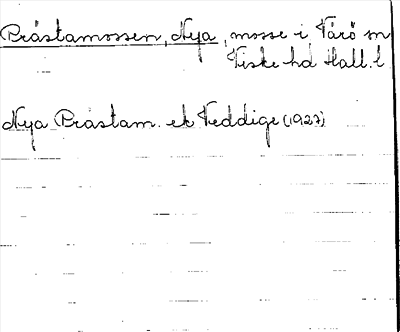 Prästamossen, Nya, mosse i Värö sn
Viske hd Hall. l.
Nya Prästam. ek Veddige (1927)